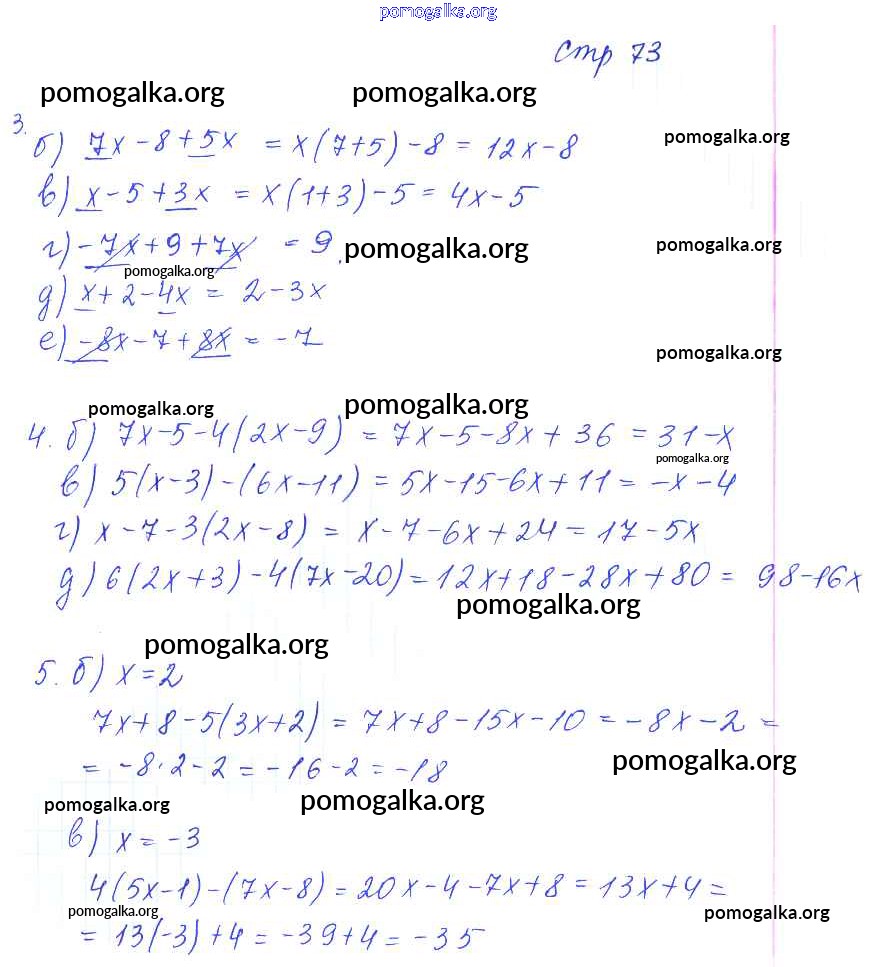 pomogalka.org
Стр 73
pomogalka.org pomogalka.org
pomogalka.org
3.
б) 7x - 8 + 5x = x(7+5) - 8 = 12x - 8
в) x - 5 + 3x = x(1+3) - 5 = 4x - 5
г) -7x + 9 + 7x = 9. pomogalka.org pomogalka.org
pomogalka.org
д) x + 2 - 4x = 2 - 3x
е) -8x - 7 + 8x = -7
pomogalka.org
pomogalka.org pomogalka.org
4. б) 7x - 5 - 4(2x - 9) = 7x - 5 - 8x + 36 = 31 - x
pomogalka.org
в) 5(x - 3) - (6x - 11) = 5x - 15 - 6x + 11 = -x - 4
г) x - 7 - 3(2x - 8) = x - 7 - 6x + 24 = 17 - 5x
д) 6(2x + 3) - 4(7x - 20) = 12x + 18 - 28x + 80 = 98 - 16x
pomogalka.org
pomogalka.org
5. б) x = 2
7x + 8 - 5(3x + 2) = 7x + 8 - 15x - 10 = -8x - 2 =
= -8 · 2 - 2 = -16 - 2 = -18
pomogalka.org
pomogalka.org pomogalka.org
в) x = -3
4(5x - 1) - (7x - 8) = 20x - 4 - 7x + 8 = 13x + 4 =
pomogalka.org pomogalka.org
= 13(-3) + 4 = -39 + 4 = -35